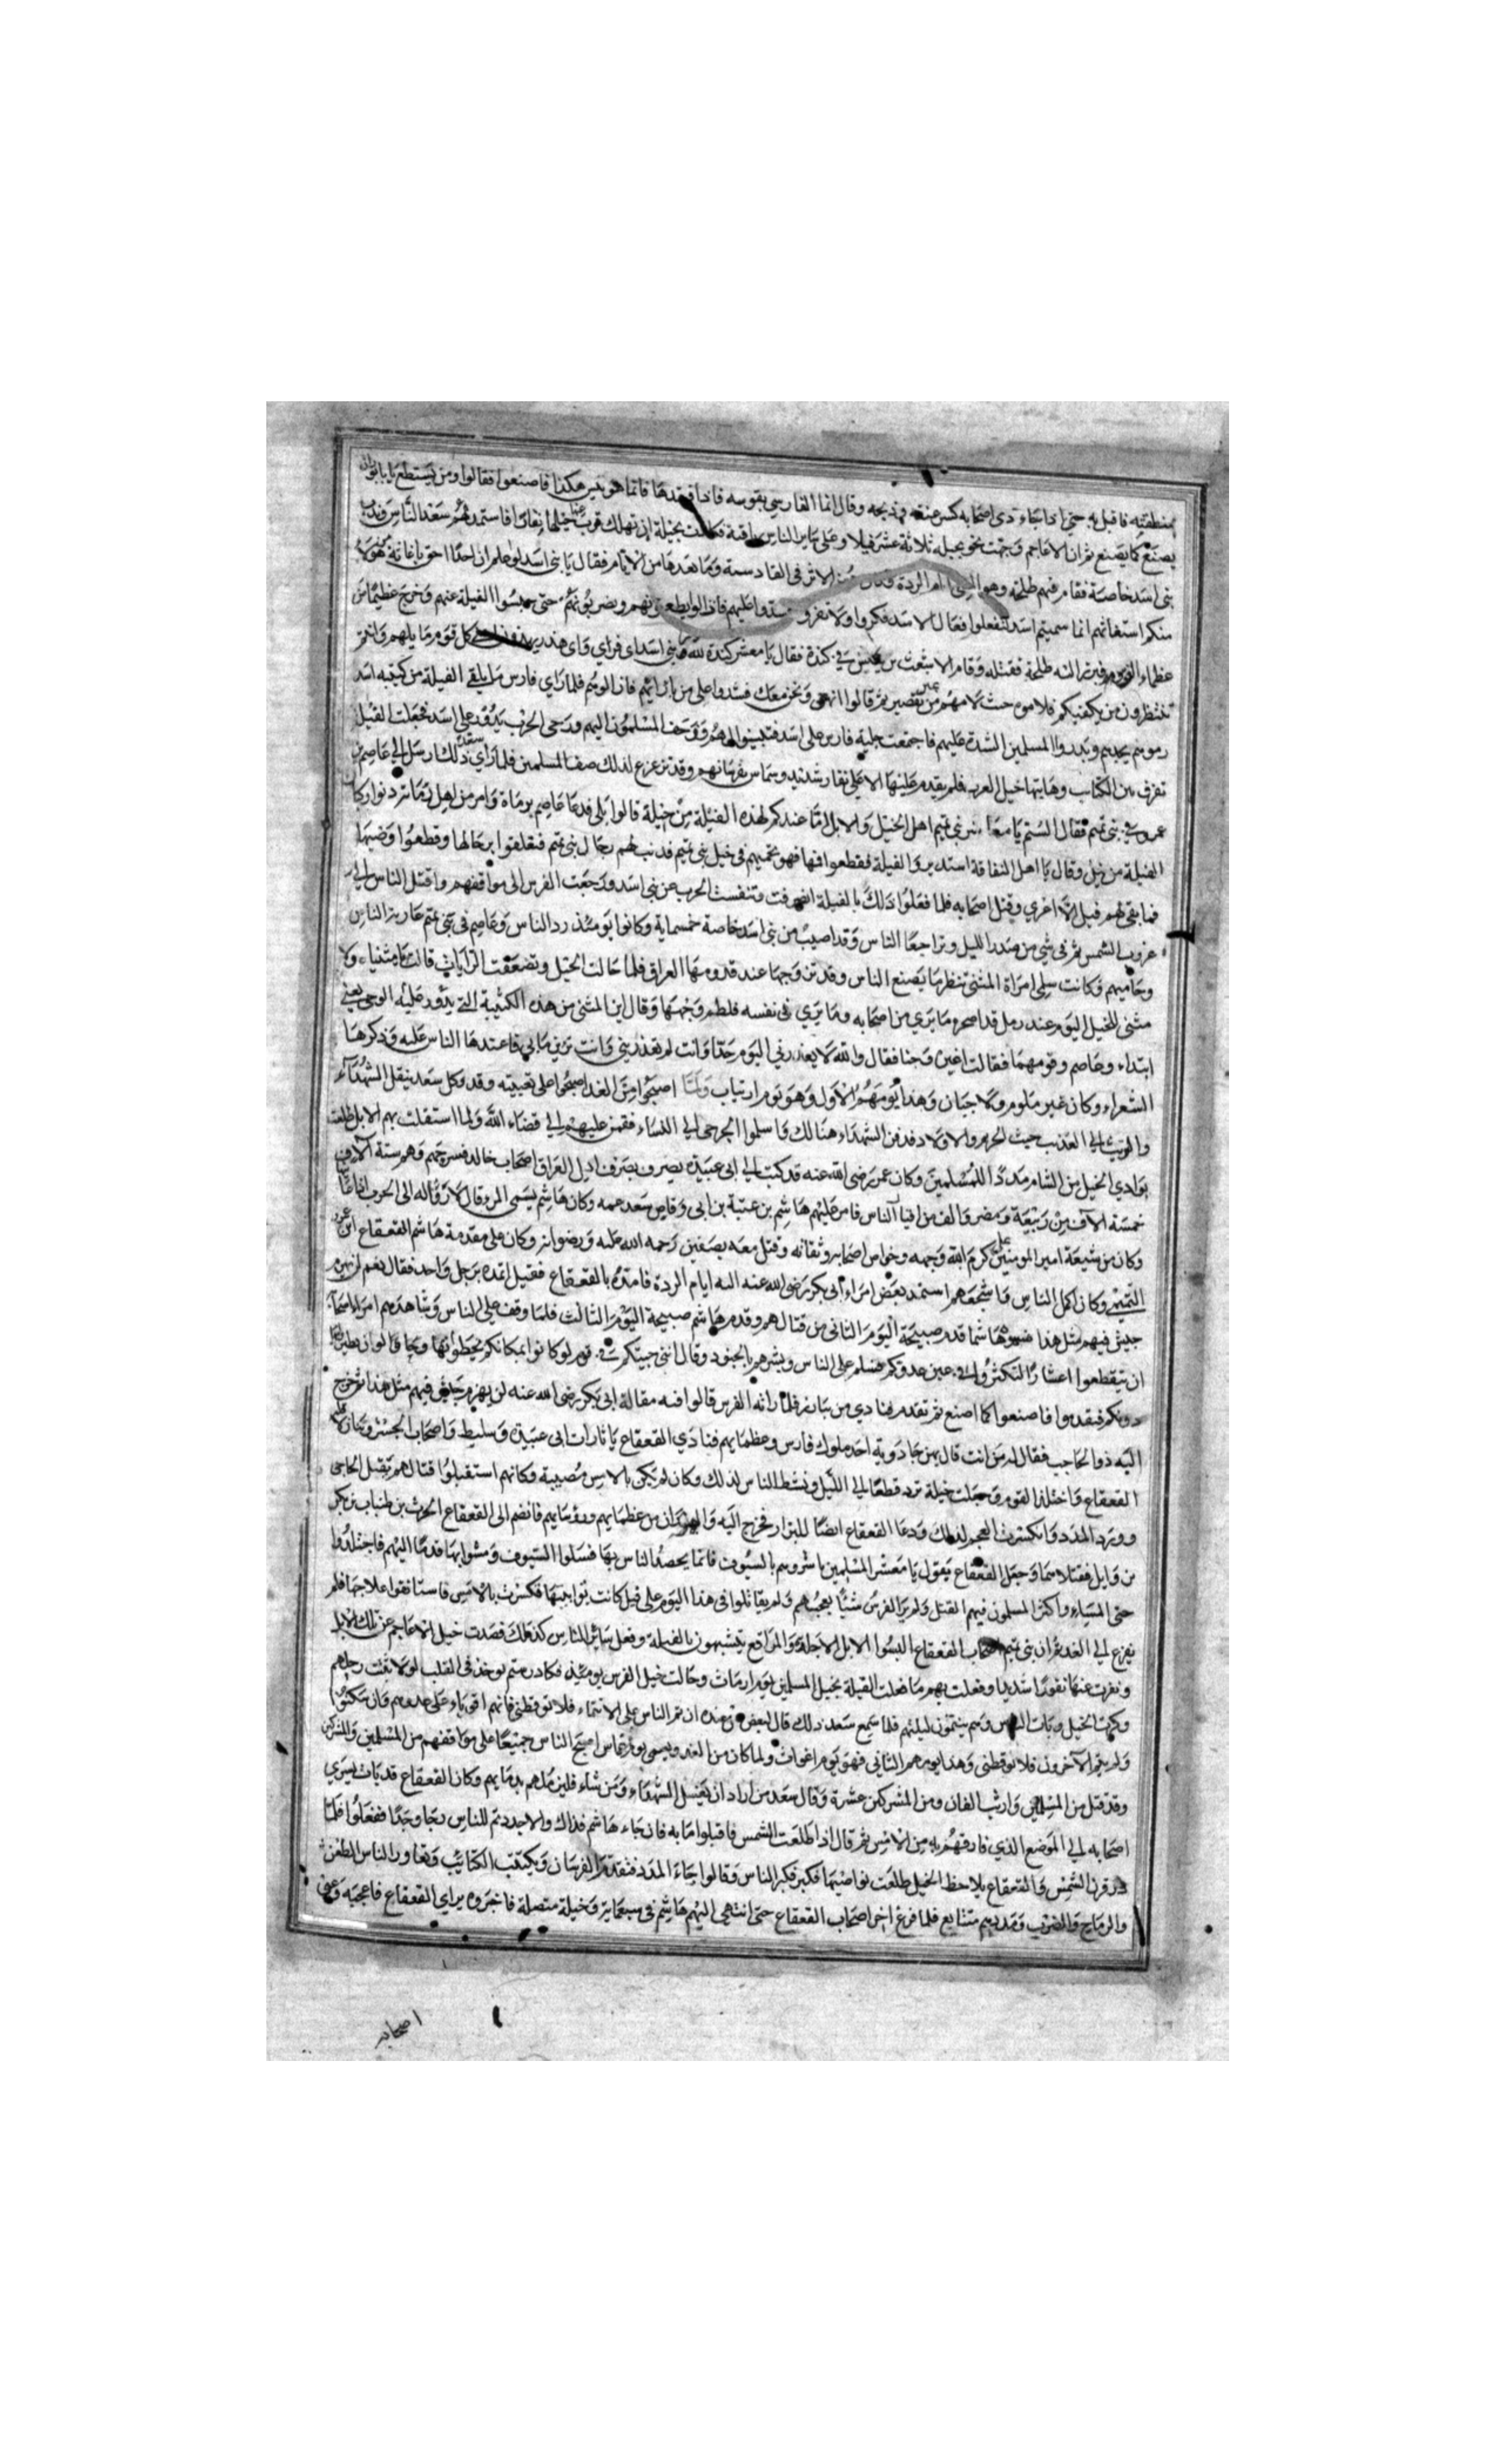 بمنطقته فاقبل به حتى اذا جاء دى اصحابه كسر عنقه وذبحه وقال انما الفارسي بقوسه فاذا فقدها فانما هو تيس هكذا فاصنعوا فقالوا ومن يستطع يا با ثور ان
يصنع كما يصنع ثم ان الاعاجم وجهت نحو بجيله ثلاثة عشر فيلا وعلى ساير الناس سبعة فكادت بجيلة ان تهلك قرب عنها خيلها نفارا فاستمد لهم سعد الناس وندب
بنى اسد خاصة فقام فيهم طلحة وهو الردة وكان الاثر فى القادسية وما بعدها من الايام فقال يا بنى اسد لو علم ان احدا احق باغاثة هؤلاء
منكم استغاثهم انما سميتم اسد لتفعلوا فعال الاسد فكروا ولا تفروا شدوا عليهم فما زالوا يطعنونهم ويضربونهم حتى حبسوا الفيلة عنهم وخرج عظيم من
عظماء الفرس فبرز اليه طلحة فقتله وقام الاشعث بن قيس فى كندة فقال يا معشر كندة لله بنى اسد اى فراي واى هند كل قوم ما يليهم وانتم
تنتظرون من يكفيكم فلاموه حيث لامهم من تقصير ثم قالوا انهض ونحن معك فشدوا على من بازائهم فازالوهم فلما راي فارس ما يلقى الفيلة من كتيبه اسد
رموهم بحدهم وبدروا المسلمين الشدة عليهم فاجتمعت حلبة فارس على اسد فثبتوا لهم وزحف المسلمون اليهم ورحى الحرب تدور على اسد فجعلت الفيلة
تفرق بين الكتايب وهابتها خيل العرب فلم يقدم عليها الا على نفار شديد وشماس بفرسانهم وقد تزعزع لذلك صف المسلمين فلما راي سعد ذلك ارسل الى عاصم بن
عمرو فى بنى تميم فقال الستم يا معاشر بني تميم اهل الخيل والابل اما عندكم لهذه الفيلة من حيلة قالوا بلى فدعا عاصم برماة وامر من اهل ثقات ردوا ركبان
الفيلة من خيل وقال يا اهل الثقافة استدبروا الفيلة فقطعوا فيها فهو يحميهم فى خيل بنى تميم فدنب لهم رجال بنى تميم فتعلقوا برحالها وقطعوا وضينها
فما بقى لهم فيل الا اعرى وقتل اصحابه فلما فعلوا ذلك بالفيلة انصرفت وتنفست الحرب عن بنى اسد ورجعت الفرس الى مواقفهم واقتتل الناس الى
غروب الشمس ثم فى شي من صدر الليل وتراجعا الناس وقد اصيب من بنى اسد خاصة خمسماية وكانوا يومئذ ردء الناس وعاصم فى بنى تميم عادية الناس
وحاميهم وكانت سلمى امراة المثنى تنظر ما يصنع الناس وقد تزوجها عند قدومها العراق فلما جالت الخيل وتضعضعت الرايات قالت وامثنياه ولا
مثنى للخيل اليوم عند رجل قد اضجره ما يرى من اصحابه وما يرى فى نفسه فلطم وجهها وقال اين المثنى من هذه الكتيبة التى تدور عليه الرحى يعني
ابتداء وعاصم وقومهما فقالت اغيرة وجبنا فقال والله لا يعذرني اليوم احدا وانت لم تعذريني وانت ترين ما بى فاعتدها الناس عليه وذكرها
الشعراء وكان غير ملوم ولا جبان وهذا يومهم الاول وهو يوم ارتياب ولما اصبحوا من الغد اصبحوا على تعبيته وقد وكل سعد بنقل الشهداء
والرثيث الى العذيب حيث الحريم والاولاد فدفن الشهداء هنالك واسلموا الجرحى الى النساء فقمن عليهم الى قضاء الله ولما استقلت بهم الابل طلعت
بوادي الخيل من الشام مددا للمسلمين وكان عمر رضى الله عنه قد كتب الى ابى عبيدة يصرف اهل العراق اصحاب خالد فسرحهم وهم ستة آلاف
خمسة الاف من ربيعة ومضر والف من افنا الناس فامر عليهم هاشم بن عتبة بن ابى وقاص سعد عمه وكان هاشم يسمى المرقال لارقاله الى الحرب
وكان من شيعة امير المومنين على كرم الله وجهه وخواص اصحابه وثقاته وقتل معه بصفين رحمه الله عليه ورضوانه وكان على مقدمة هاشم القعقاع ابن عمرو
التميمي وكان اكمل الناس واشجعهم استمد بعض امراء ابى بكر رضى الله عنه اليه ايام الردة فامده بالقعقاع فقيل اتمده برجل واحد فقال نعم لن يهزم
جيش فيهم مثل هذا هاشما قدم صبيحة اليوم الثانى من قتالهم وقدم هاشم صبيحة اليوم الثالث فلما وقف على الناس وشاهدهم امر اصحابه
ان يتقطعوا اعشارا لتكثروا فى عين عدوكم فسلم على الناس وبشرهم بالجنود وقال انى جيتكم فى قوم لو كانوا بمكانكم
دونكم فتقدموا فاصنعوا كما اصنع ثم تقدم ينادي من يبارز فلما رانه الفرس قالوا فيه مقالة ابى بكر رضى الله عنه لن يهزم جيش فيهم مثل هذا فخرج
اليه ذو الحاجب فقال له من انت قال بهمن جادويه احد ملوك فارس وعظمايهم فنادى القعقاع يا ثارات ابى عبيدة وسليط واصحاب الجسر وتجاولا
القعقاع واختلف القوم وجعلت خيلة ترد قطعا الى الليل ونشط الناس لذلك وكان لم يكن بالامس مصيبة وكانهم استقبلوا قتالهم بقتل الحاجبى
وورد المدد وانكسرت العجم لذلك ودعا القعقاع ايضا للبراز فخرج اليه من عظمايهم ورؤسايهم فانضم الى القعقاع الحرث بن ظبيان بن بكر
بن وايل فقتلاهما وجعل القعقاع يقول يا معشر المسلمين باشروهم بالسيوف فانما يحصد الناس بها فسلوا السيوف ومشوا بها قدما اليهم فاجتلدوا
حتى المساء واكثر المسلمون فيهم القتل ولم ير الفرس شيئا يعجبهم ولم يقاتلوا فى هذا اليوم على فيل كانت توابيتها تكسرت بالامس فاستانفوا علاجها فلم
يفرغ الى الغد ثم ان بنى تميم اصحاب القعقاع البسوا الابل الاجلة والبراقع يتشبهون بالفيلة وفعل ساير الناس كذلك فصدت خيل الاعاجم عن تلك الابل
ونفرت عنها نفورا شديدا وفعلت بهم ما فعلت الفيلة بخيل المسلمين يوم ارماث وجالت خيل الفرس يومئذ فكاد رستم يوخذ فى القلب لولا ثبتت رجلهم
وكرت الخيل وبات الناس وهم ينتمون ليلتهم فلما سمع سعد ذلك قال لبعض من عنده ان تم الناس على الانتماء فلا توقظنى فانهم اقوياء على عدوهم وان سكتوا
ولم ينتم الآخرون فلا توقظنى وهذا يومهم الثانى فهو يوم اغواث ولما كان من الغد ويسمى يوم عماس اصبح الناس جميعا على مواقفهم من المسلمين والمشركين
وقد قتل من المسلمين وارتث الفان ومن المشركين عشرة وقال سعد من اراد ان يغسل الشهداء ومن شاء فليدفنهم بدمايهم وكان القعقاع قد بات يسري
اصحابه الى الموضع الذي فارقهم به من الامس ثم قال اذا طلعت الشمس فاقبلوا ماية فان جاء هاشم فذاك والا جددتم للناس رجاء وجدا ففعلوا فلما
ذر قرن الشمس والقعقاع يلاحظ الخيل طلعت نواصيها فكبر فكبر الناس وقالوا جاء المدد فتقدم الفرسان وتكتبت الكتايب وتعاور الناس الطعن
والرماح والضرب ومددهم متتابع فلما فرغ اخر اصحاب القعقاع حتى انتهى اليهم هاشم فى سبعماية وخيله متصلة فاخبروه براي القعقاع فاعجبه وعبى
اصحابه